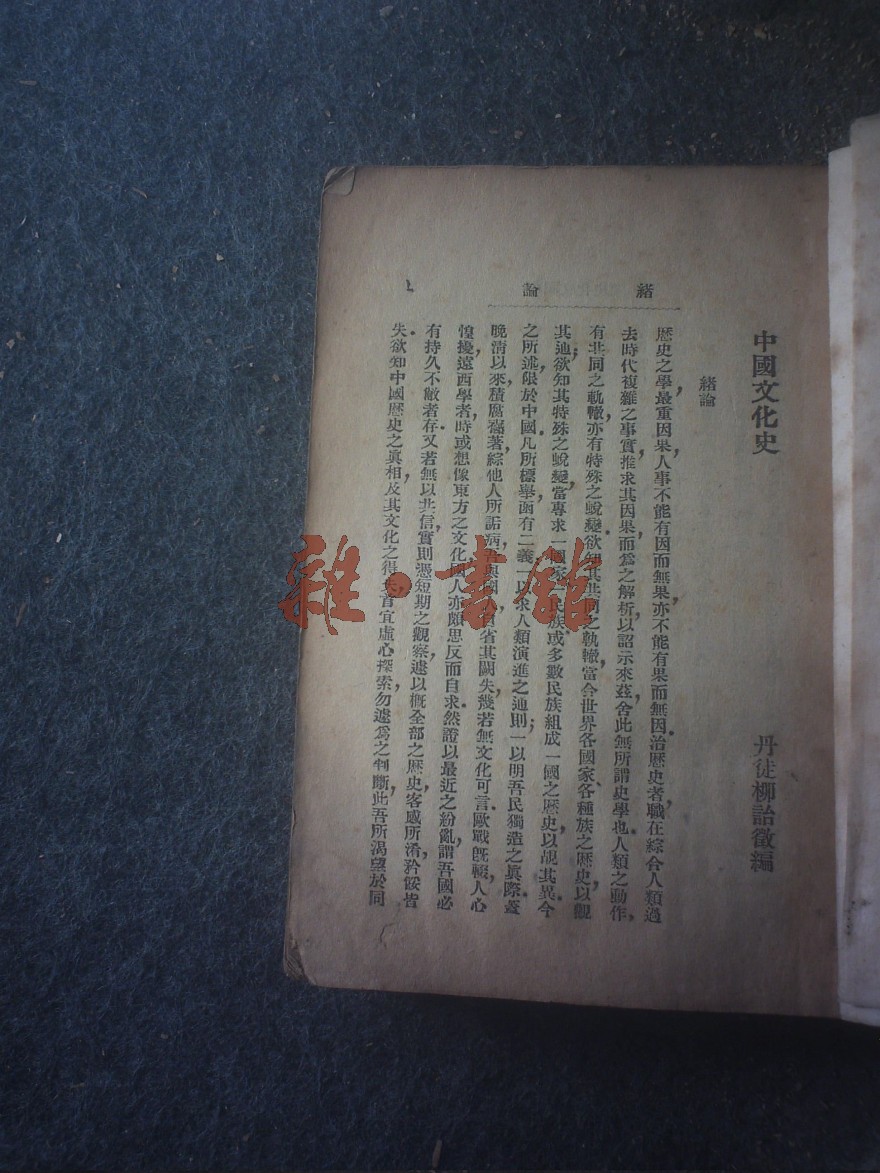 中國文化史
丹徒柳詒徵編
緒論
歷史之學，最重因果。人事不能有因而無果，亦不能有果而無因。治歷史者，職在綜合人類過
去時代複雜之事實，推求其因果而爲之解析，以詔示來茲，舍此無所謂史學也。人類之動作，
有共同之軌轍，亦有特殊之蛻變。欲知其共同之軌轍，當合世界各國家、各種族之歷史，以觀
其通；欲知其特殊之蛻變，當專求一國家、一民族或多數民族組成一國之歷史，以覘其異。今
之所述，限於中國。凡所標舉，函有二義：一以求人類演進之通則；一以明吾民獨造之眞際。蓋
晚清以來，積腐襮著，綜他人所詬病，與國人自省其闕失，幾若無文化可言。歐戰旣輟，人心
惶擾，遠西學者，時或想像東方之文化，國人亦頗思反而自求。然證以最近之紛亂，謂吾國必
有持久不敝者存，又若無以共信。實則憑短期之觀察，遽以槪全部之歷史，客感所淆，矜餒皆
失。欲知中國歷史之眞相，及其文化之得失，首宜虛心探索，勿遽爲之判斷，此吾所渴望於同
緒論
雜·書館